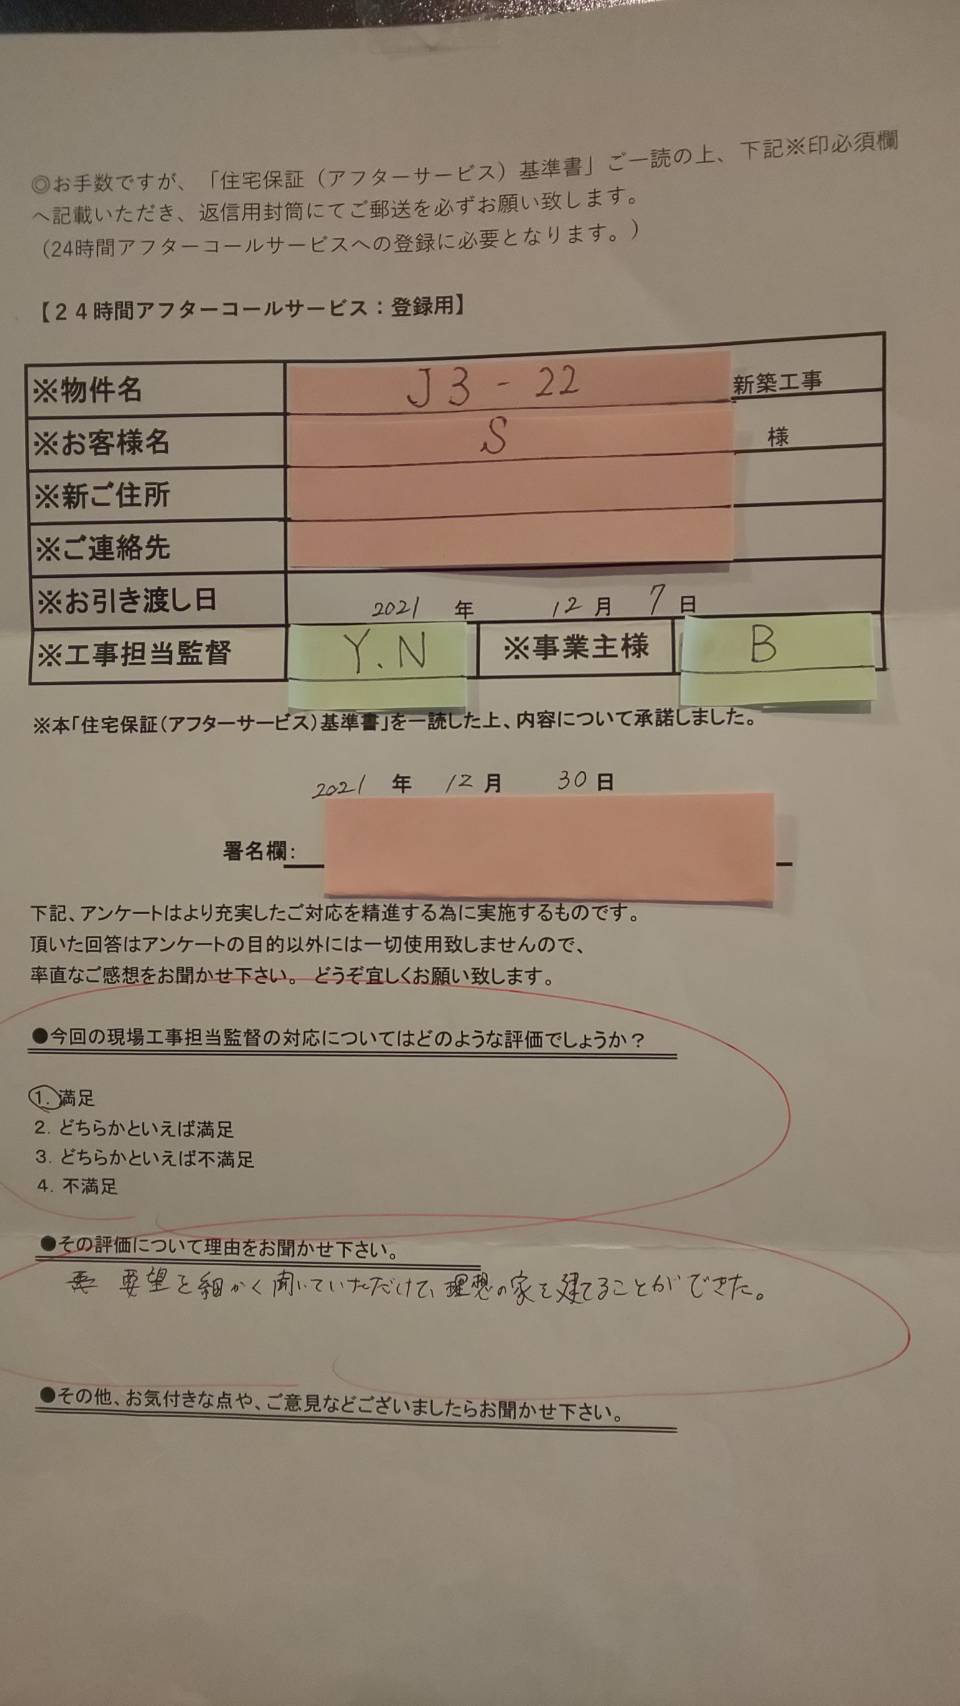 ◎お手数ですが、「住宅保証（アフターサービス）基準書」ご一読の上、下記※印必須欄
へ記載いただき、返信用封筒にてご郵送を必ずお願い致します。
（24時間アフターコールサービスへの登録に必要となります。）
【２４時間アフターコールサービス：登録用】
※物件名 J3-22 新築工事
※お客様名 S 様
※新ご住所
※ご連絡先
※お引き渡し日 2021 年 12 月 7 日
※工事担当監督 Y.N ※事業主様 B
※本「住宅保証（アフターサービス）基準書」を一読した上、内容について承諾しました。
2021 年 12 月 30 日
署名欄：
下記、アンケートはより充実したご対応を精進する為に実施するものです。
頂いた回答はアンケートの目的以外には一切使用致しませんので、
率直なご感想をお聞かせ下さい。 どうぞ宜しくお願い致します。
●今回の現場工事担当監督の対応についてはどのような評価でしょうか？
1. 満足
2. どちらかといえば満足
3. どちらかといえば不満足
4. 不満足
●その評価について理由をお聞かせ下さい。
要望を細かく聞いていただけて、理想の家を建てることができた。
●その他、お気付きな点や、ご意見などございましたらお聞かせ下さい。